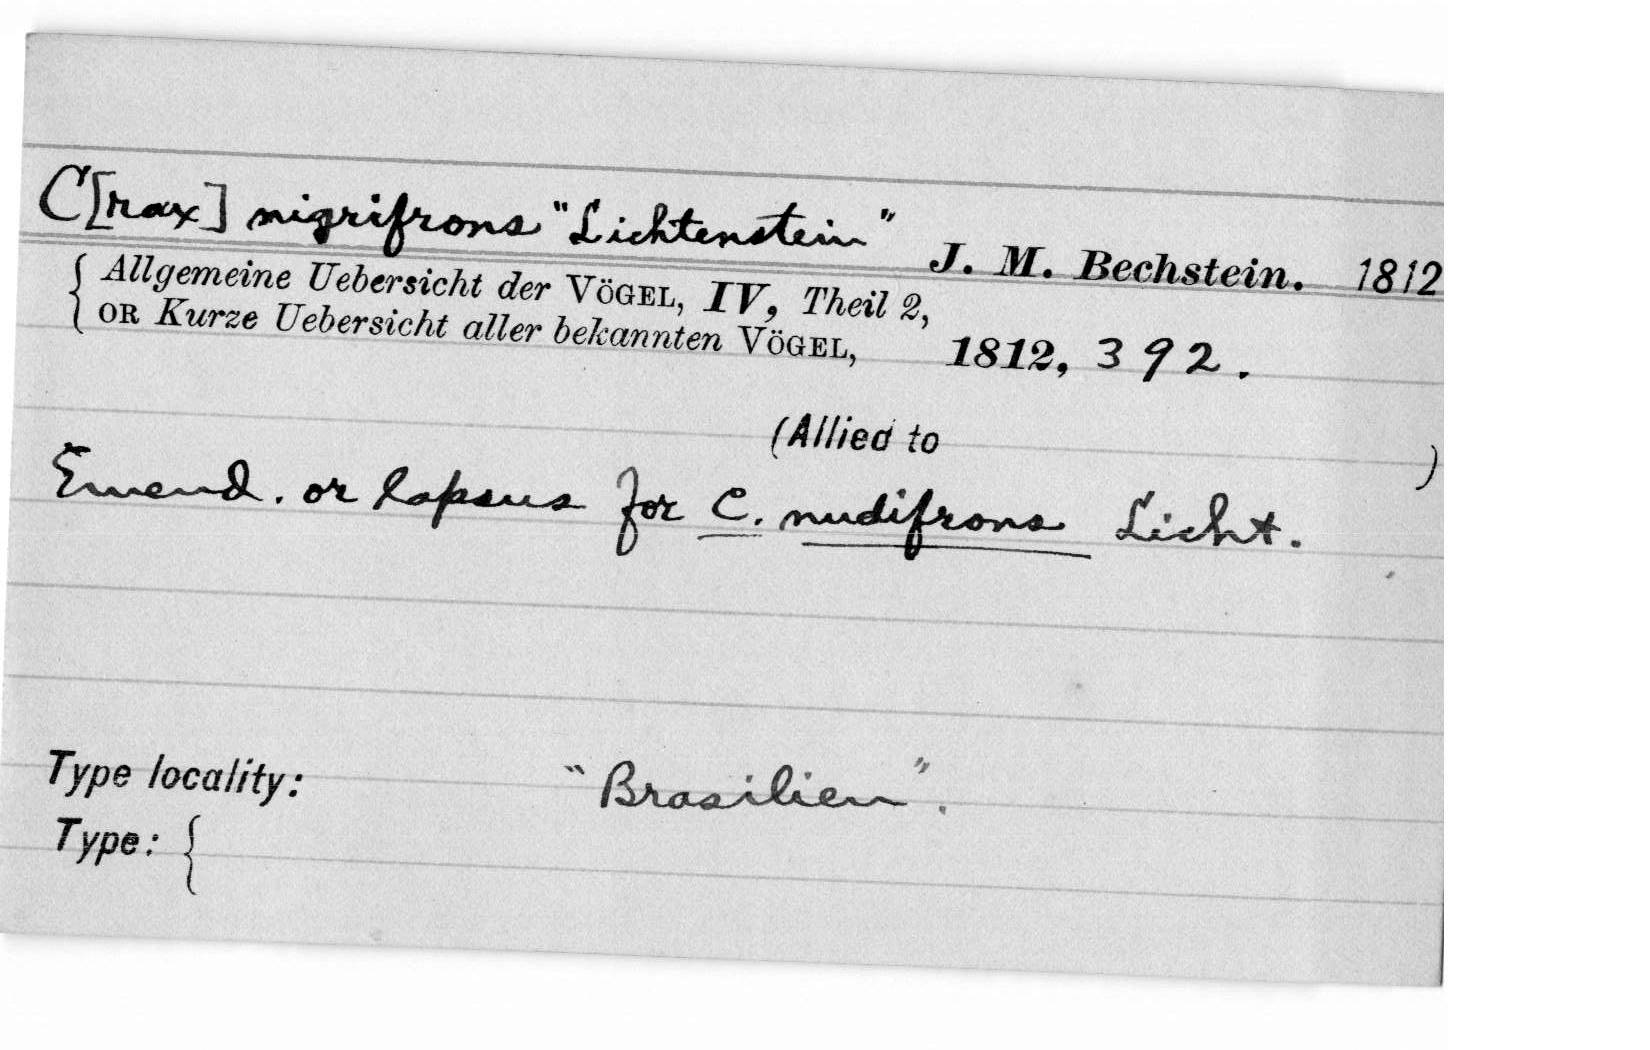 C[rax] nigrifrons "Lichtenstein" J. M. Bechstein. 1812
{ Allgemeine Uebersicht der VÖGEL, IV, Theil 2,
OR Kurze Uebersicht aller bekannten VÖGEL, 1812, 392.
(Allied to )
Emend. or lapsus for C. nudifrons Licht.
Type locality: "Brasilien".
Type: {